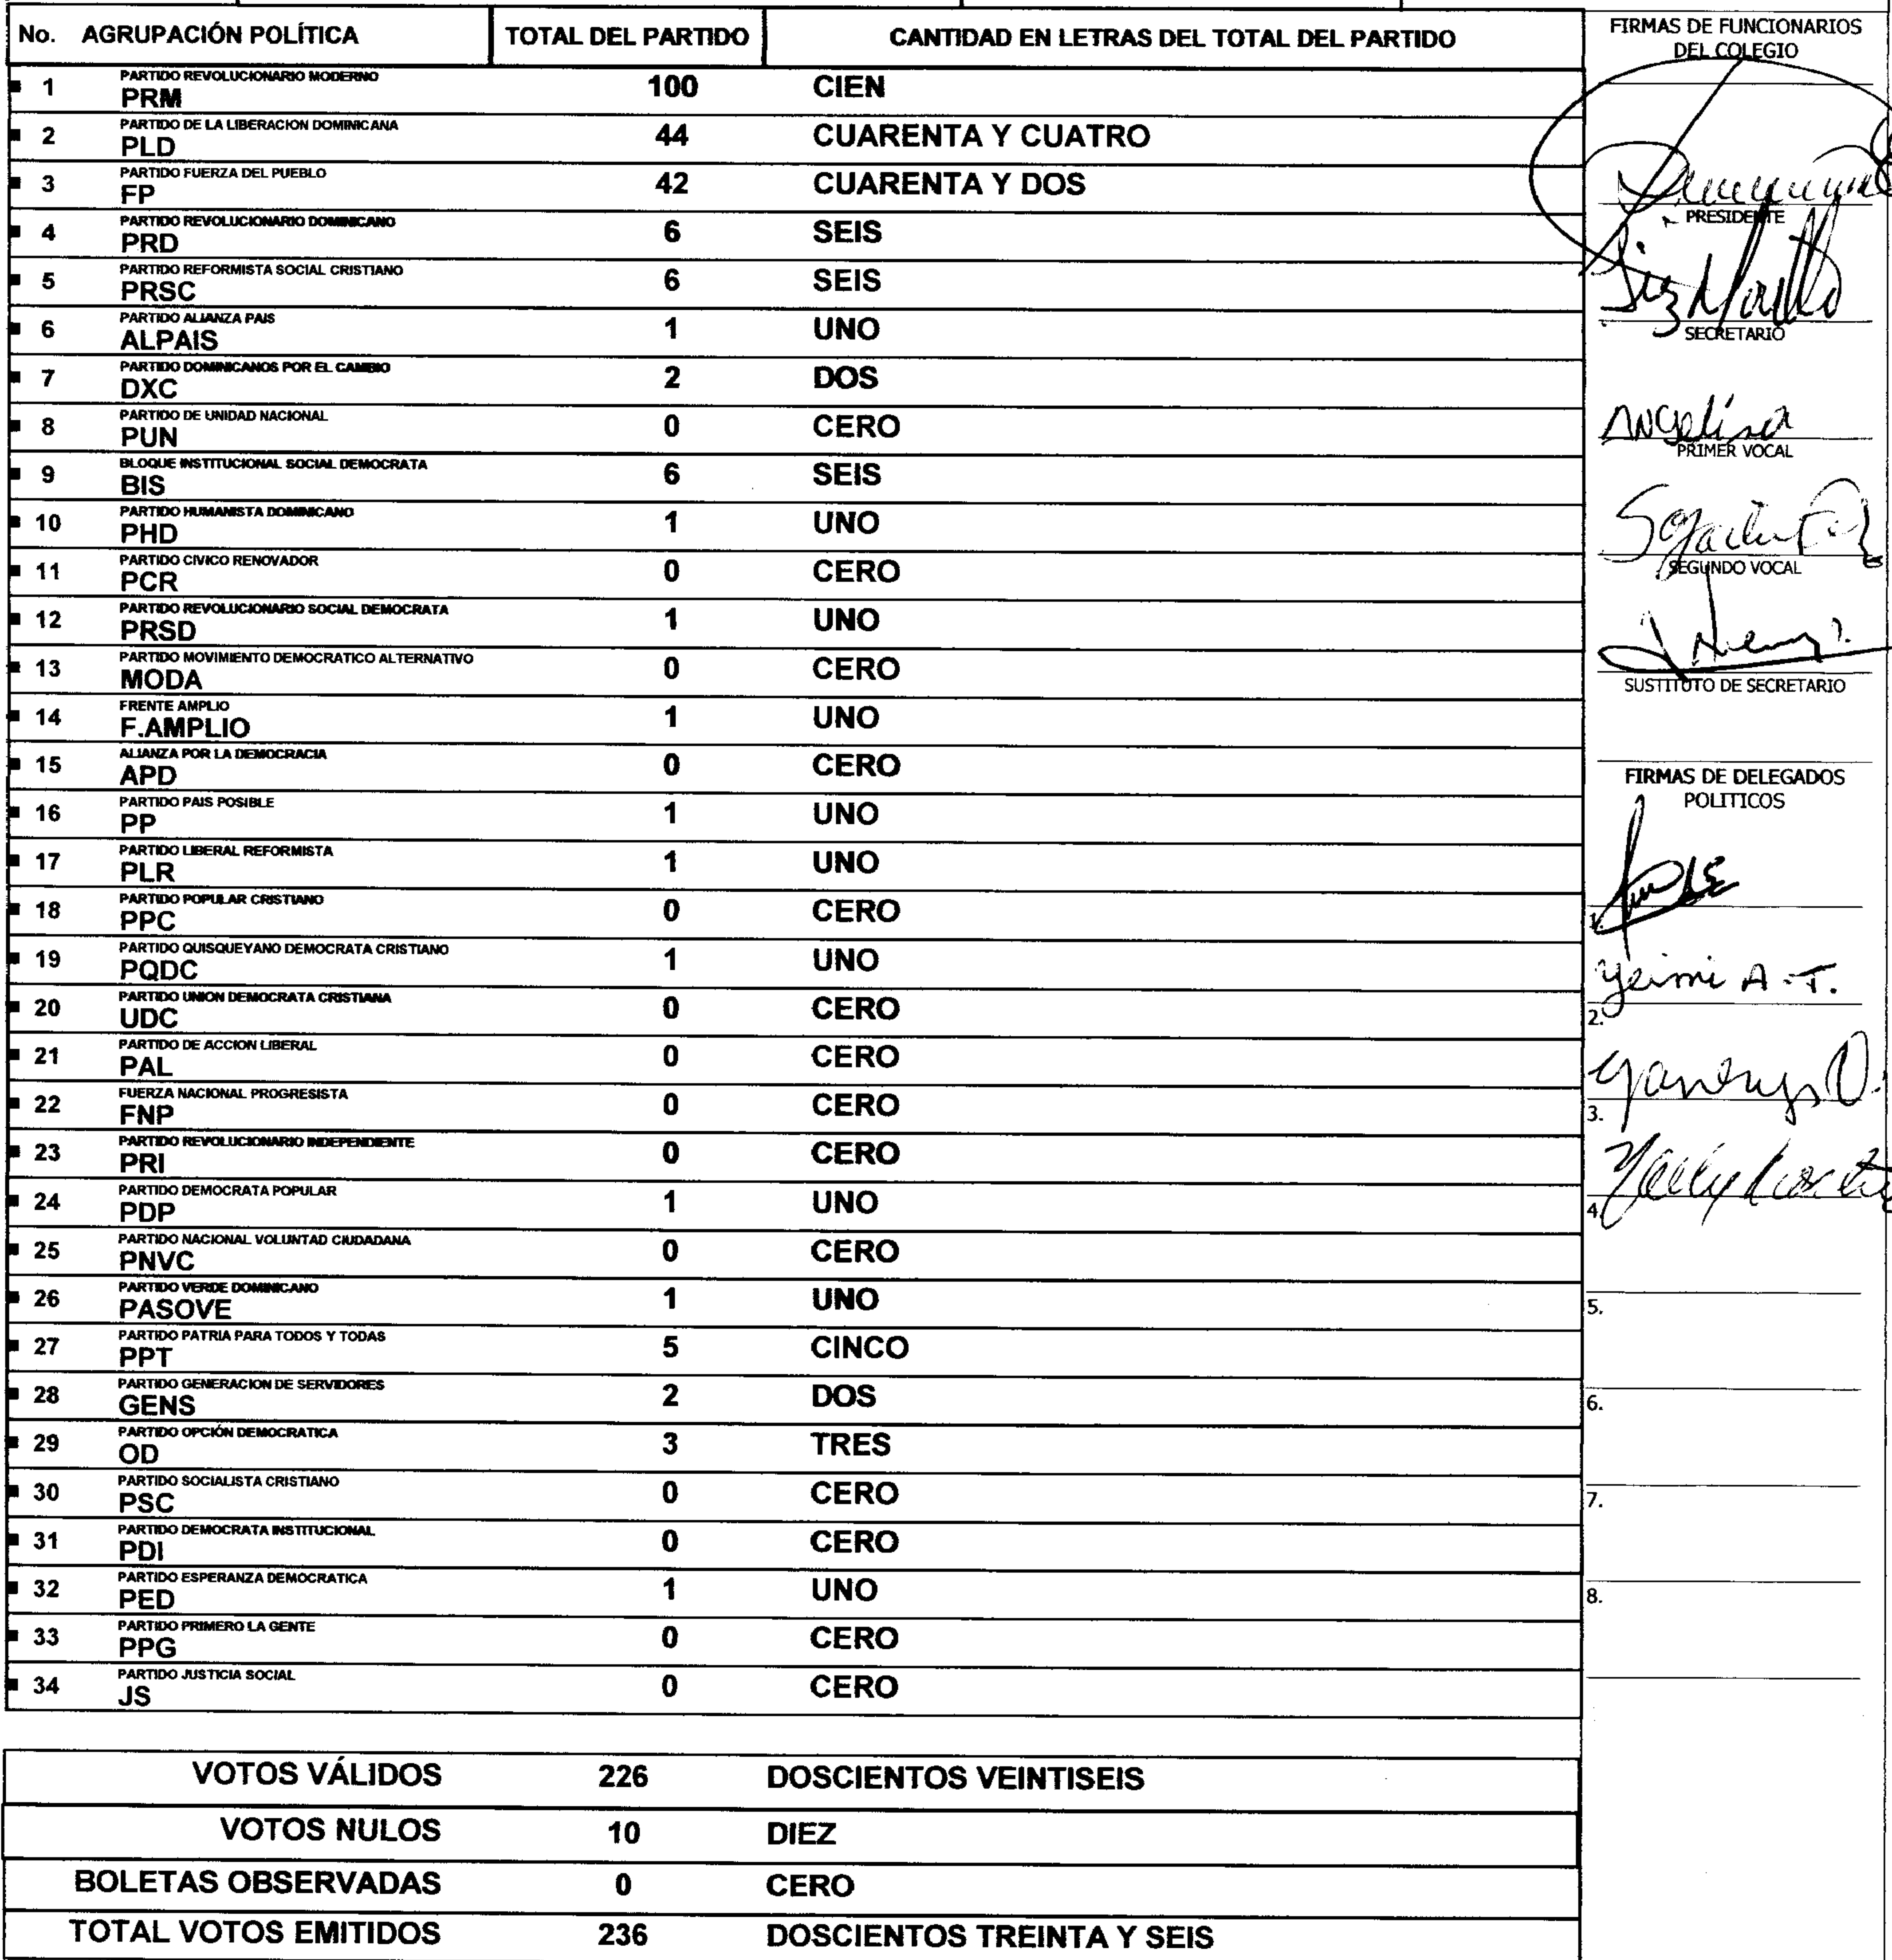 No. AGRUPACIÓN POLÍTICA TOTAL DEL PARTIDO CANTIDAD EN LETRAS DEL TOTAL DEL PARTIDO
PARTIDO REVOLUCIONARIO MODERNO
1 PRM 100 CIEN
PARTIDO DE LA LIBERACION DOMINICANA
2 PLD 44 CUARENTA Y CUATRO
PARTIDO FUERZA DEL PUEBLO
3 FP 42 CUARENTA Y DOS
PARTIDO REVOLUCIONARIO DOMINICANO
4 PRD 6 SEIS
PARTIDO REFORMISTA SOCIAL CRISTIANO
5 PRSC 6 SEIS
PARTIDO ALIANZA PAIS
6 ALPAIS 1 UNO
PARTIDO DOMINICANOS POR EL CAMBIO
7 DXC 2 DOS
PARTIDO DE UNIDAD NACIONAL
8 PUN 0 CERO
BLOQUE INSTITUCIONAL SOCIAL DEMOCRATA
9 BIS 6 SEIS
PARTIDO HUMANISTA DOMINICANO
10 PHD 1 UNO
PARTIDO CIVICO RENOVADOR
11 PCR 0 CERO
PARTIDO REVOLUCIONARIO SOCIAL DEMOCRATA
12 PRSD 1 UNO
PARTIDO MOVIMIENTO DEMOCRATICO ALTERNATIVO
13 MODA 0 CERO
FRENTE AMPLIO
14 F.AMPLIO 1 UNO
ALIANZA POR LA DEMOCRACIA
15 APD 0 CERO
PARTIDO PAIS POSIBLE
16 PP 1 UNO
PARTIDO LIBERAL REFORMISTA
17 PLR 1 UNO
PARTIDO POPULAR CRISTIANO
18 PPC 0 CERO
PARTIDO QUISQUEYANO DEMOCRATA CRISTIANO
19 PQDC 1 UNO
PARTIDO UNION DEMOCRATA CRISTIANA
20 UDC 0 CERO
PARTIDO DE ACCION LIBERAL
21 PAL 0 CERO
FUERZA NACIONAL PROGRESISTA
22 FNP 0 CERO
PARTIDO REVOLUCIONARIO INDEPENDIENTE
23 PRI 0 CERO
PARTIDO DEMOCRATA POPULAR
24 PDP 1 UNO
PARTIDO NACIONAL VOLUNTAD CIUDADANA
25 PNVC 0 CERO
PARTIDO VERDE DOMINICANO
26 PASOVE 1 UNO
PARTIDO PATRIA PARA TODOS Y TODAS
27 PPT 5 CINCO
PARTIDO GENERACION DE SERVIDORES
28 GENS 2 DOS
PARTIDO OPCIÓN DEMOCRATICA
29 OD 3 TRES
PARTIDO SOCIALISTA CRISTIANO
30 PSC 0 CERO
PARTIDO DEMOCRATA INSTITUCIONAL
31 PDI 0 CERO
PARTIDO ESPERANZA DEMOCRATICA
32 PED 1 UNO
PARTIDO PRIMERO LA GENTE
33 PPG 0 CERO
PARTIDO JUSTICIA SOCIAL
34 JS 0 CERO
VOTOS VÁLIDOS 226 DOSCIENTOS VEINTISEIS
VOTOS NULOS 10 DIEZ
BOLETAS OBSERVADAS 0 CERO
TOTAL VOTOS EMITIDOS 236 DOSCIENTOS TREINTA Y SEIS
FIRMAS DE FUNCIONARIOS
DEL COLEGIO
PRESIDENTE
SECRETARIO
Angelina
PRIMER VOCAL
SEGUNDO VOCAL
SUSTITUTO DE SECRETARIO
FIRMAS DE DELEGADOS
POLITICOS
1.
Yeimi A.T.
2.
3.
4.
5.
6.
7.
8.